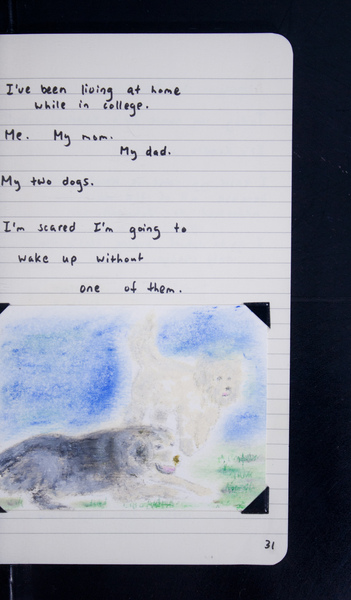 I've been living at home
while in college.
Me. My mom.
My dad.
My two dogs.
I'm scared I'm going to
wake up without
one of them.
31